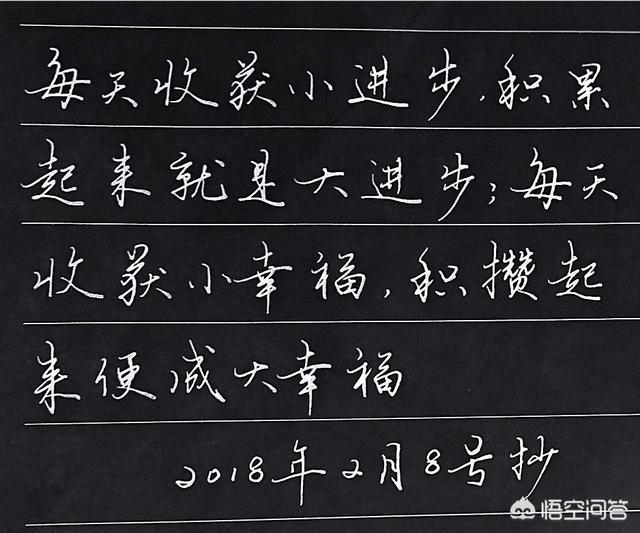 每天收获小进步，积累
起来就是大进步；每天
收获小幸福，积攒起
来便成大幸福
2018年2月8号抄
悟空问答